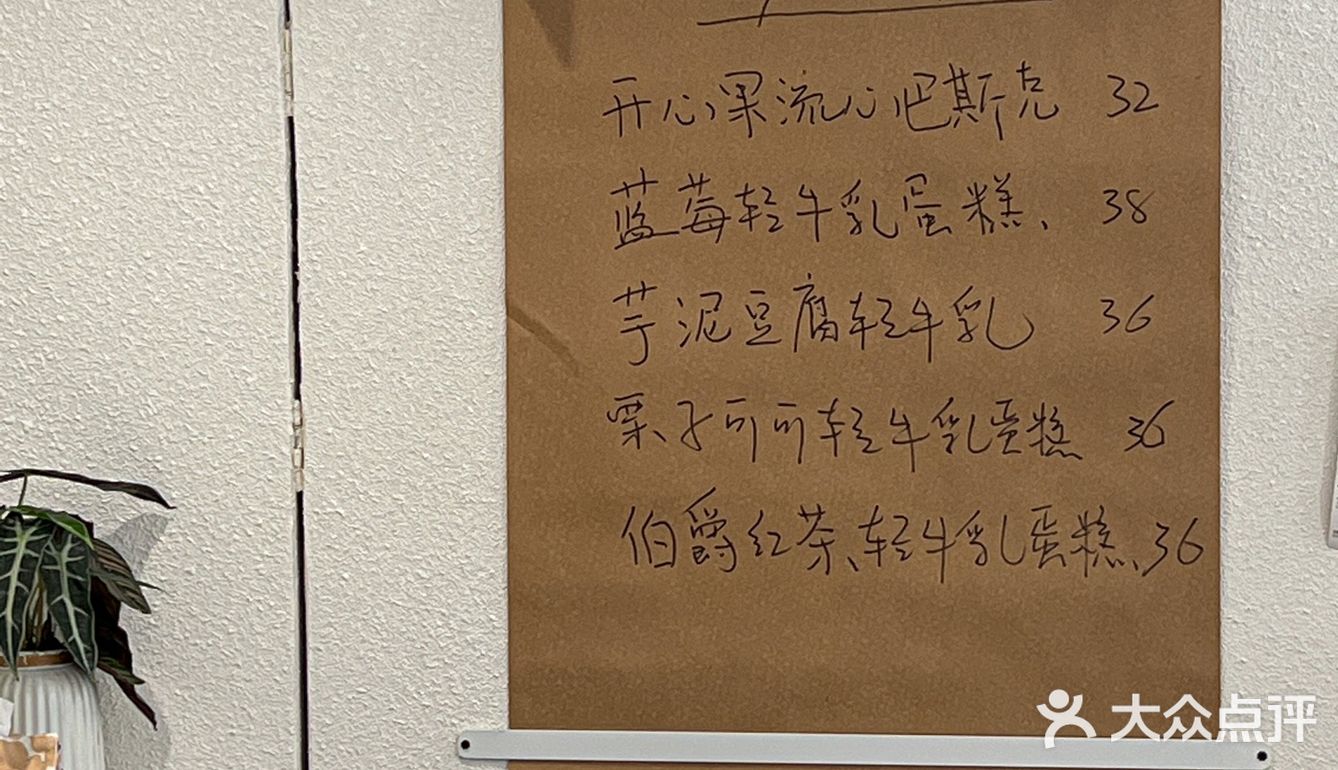 开心果流心巴斯克 32
蓝莓轻牛乳蛋糕、 38
芋泥豆腐轻牛乳 36
栗子可可轻牛乳蛋糕 36
伯爵红茶轻牛乳蛋糕、36
大众点评